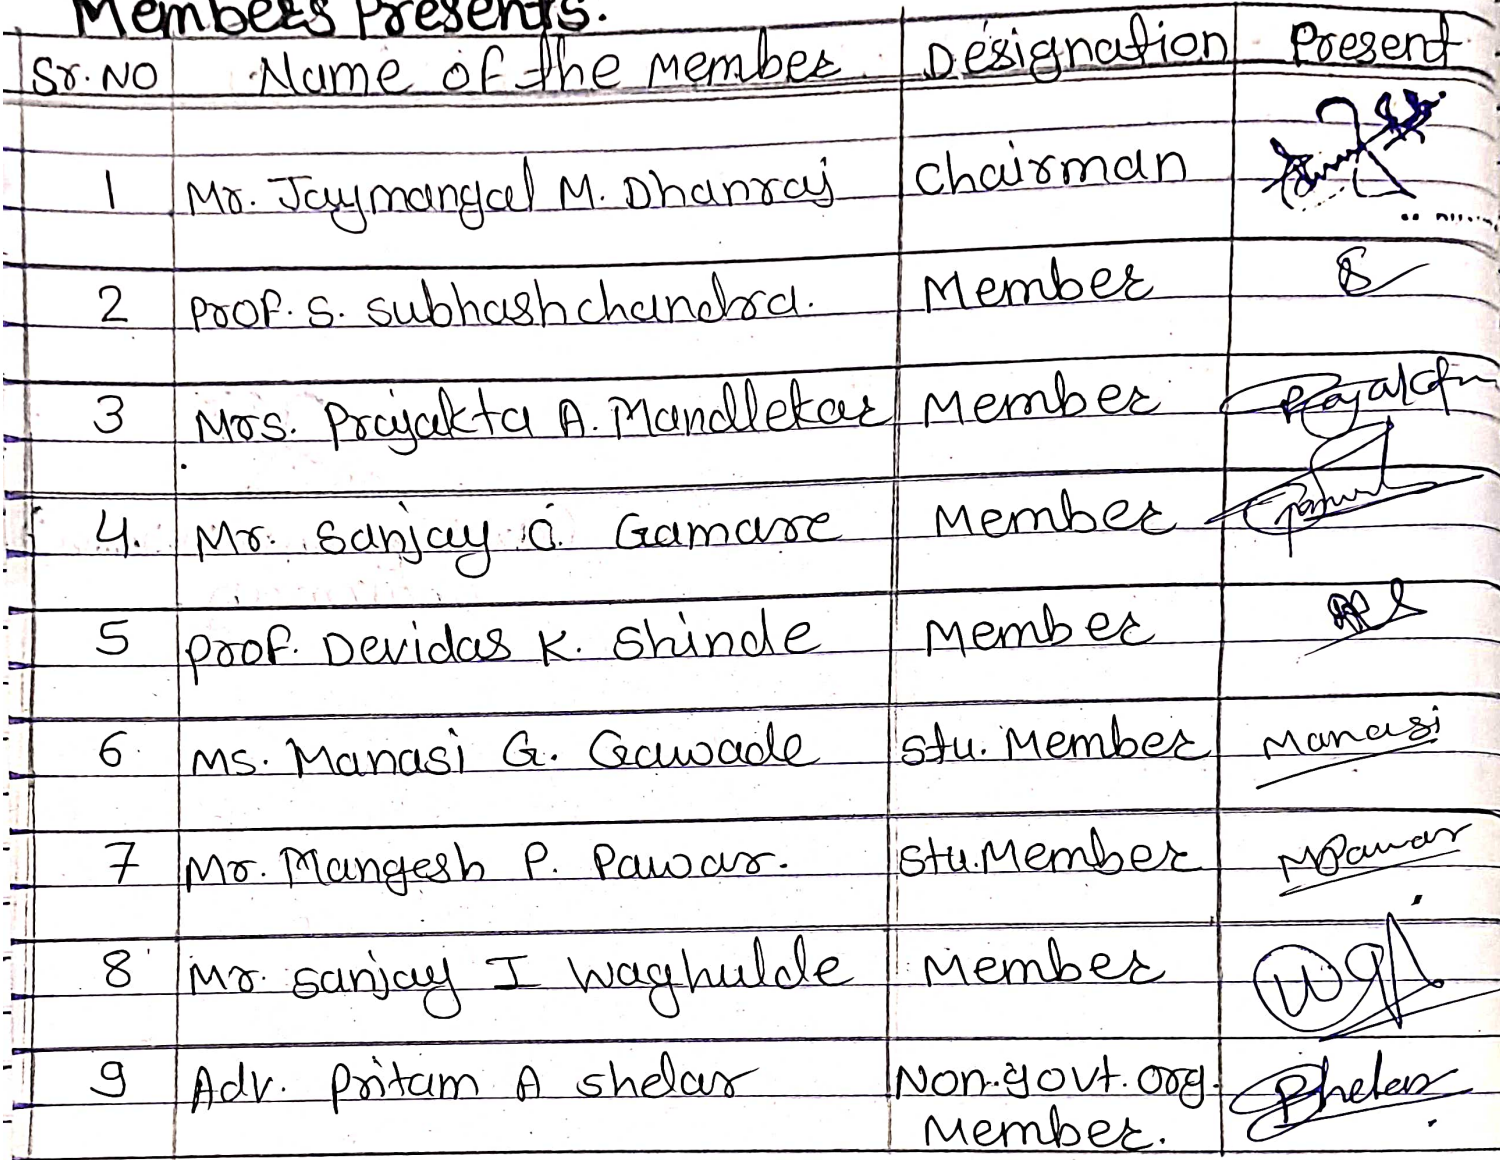 Members Presents.
Sr. No Name of the Member Designation Present
1 Mr. Jaymangal M. Dhanraj Chairman
2 Prof. S. Subhashchandra. Member S
3 Mrs. Prajakta A. Mandlekar Member Prajakta
4. Mr. Sanjay C. Gamare Member
5 Prof. Devidas K. Shinde Member
6 Ms. Manasi G. Gawade Stu. Member Manasi
7 Mr. Mangesh P. Pawar. Stu. Member MPawar
8 Mr. Sanjay I Waghulde Member
9 Adv. Pritam A Shelar Non-govt. org.
Member.